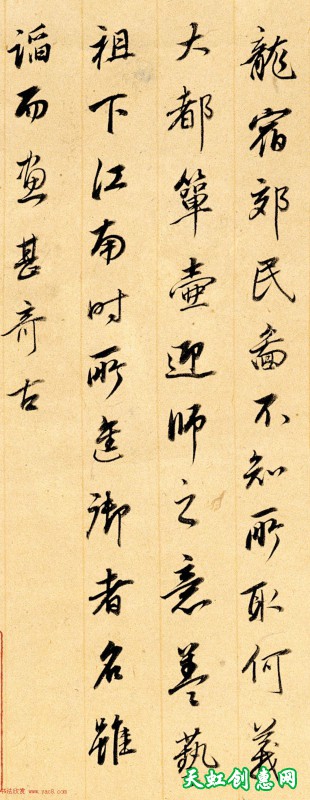 龍宿郊民圖不知所取何義
大都簞壺迎師之意蓋藝
祖下江南時所進御者名雖
諂而畫甚奇古
天虹创意网